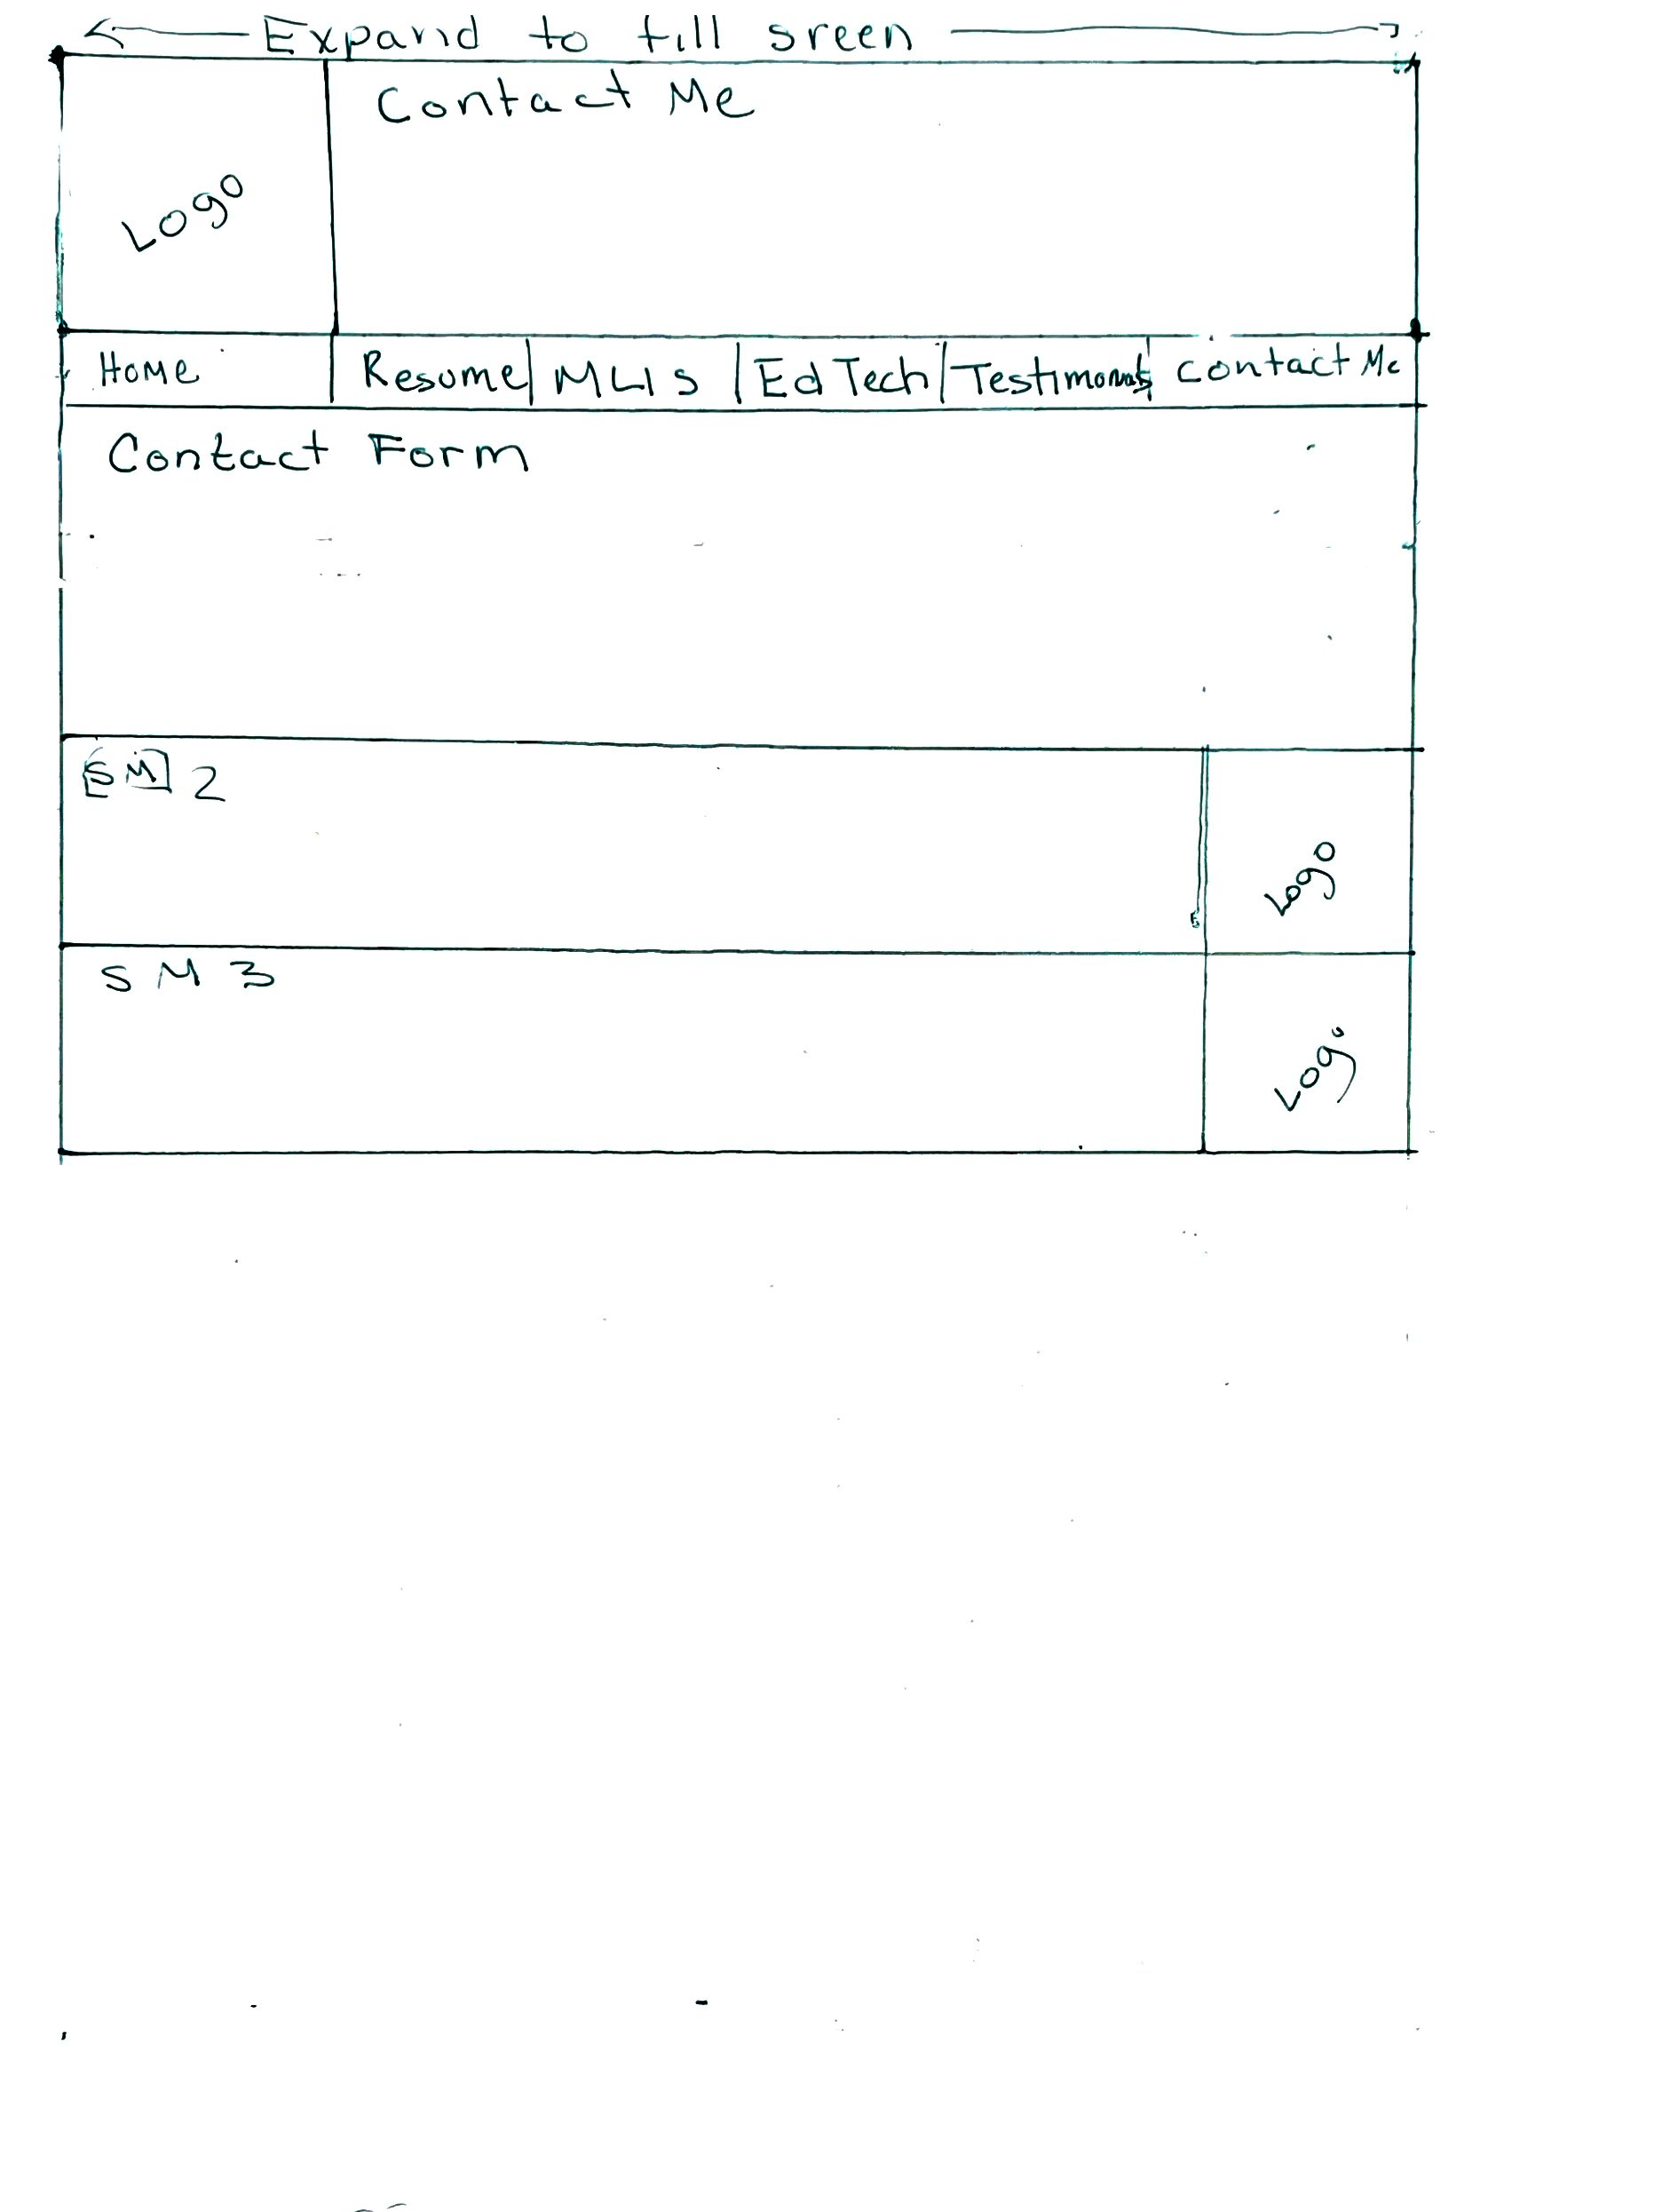 Expand to fill sreen
Contact Me
Logo
Home Resume MLIS Ed Tech Testimonals contact Me
Contact Form
SM 2
Logo
SM 3
Logo